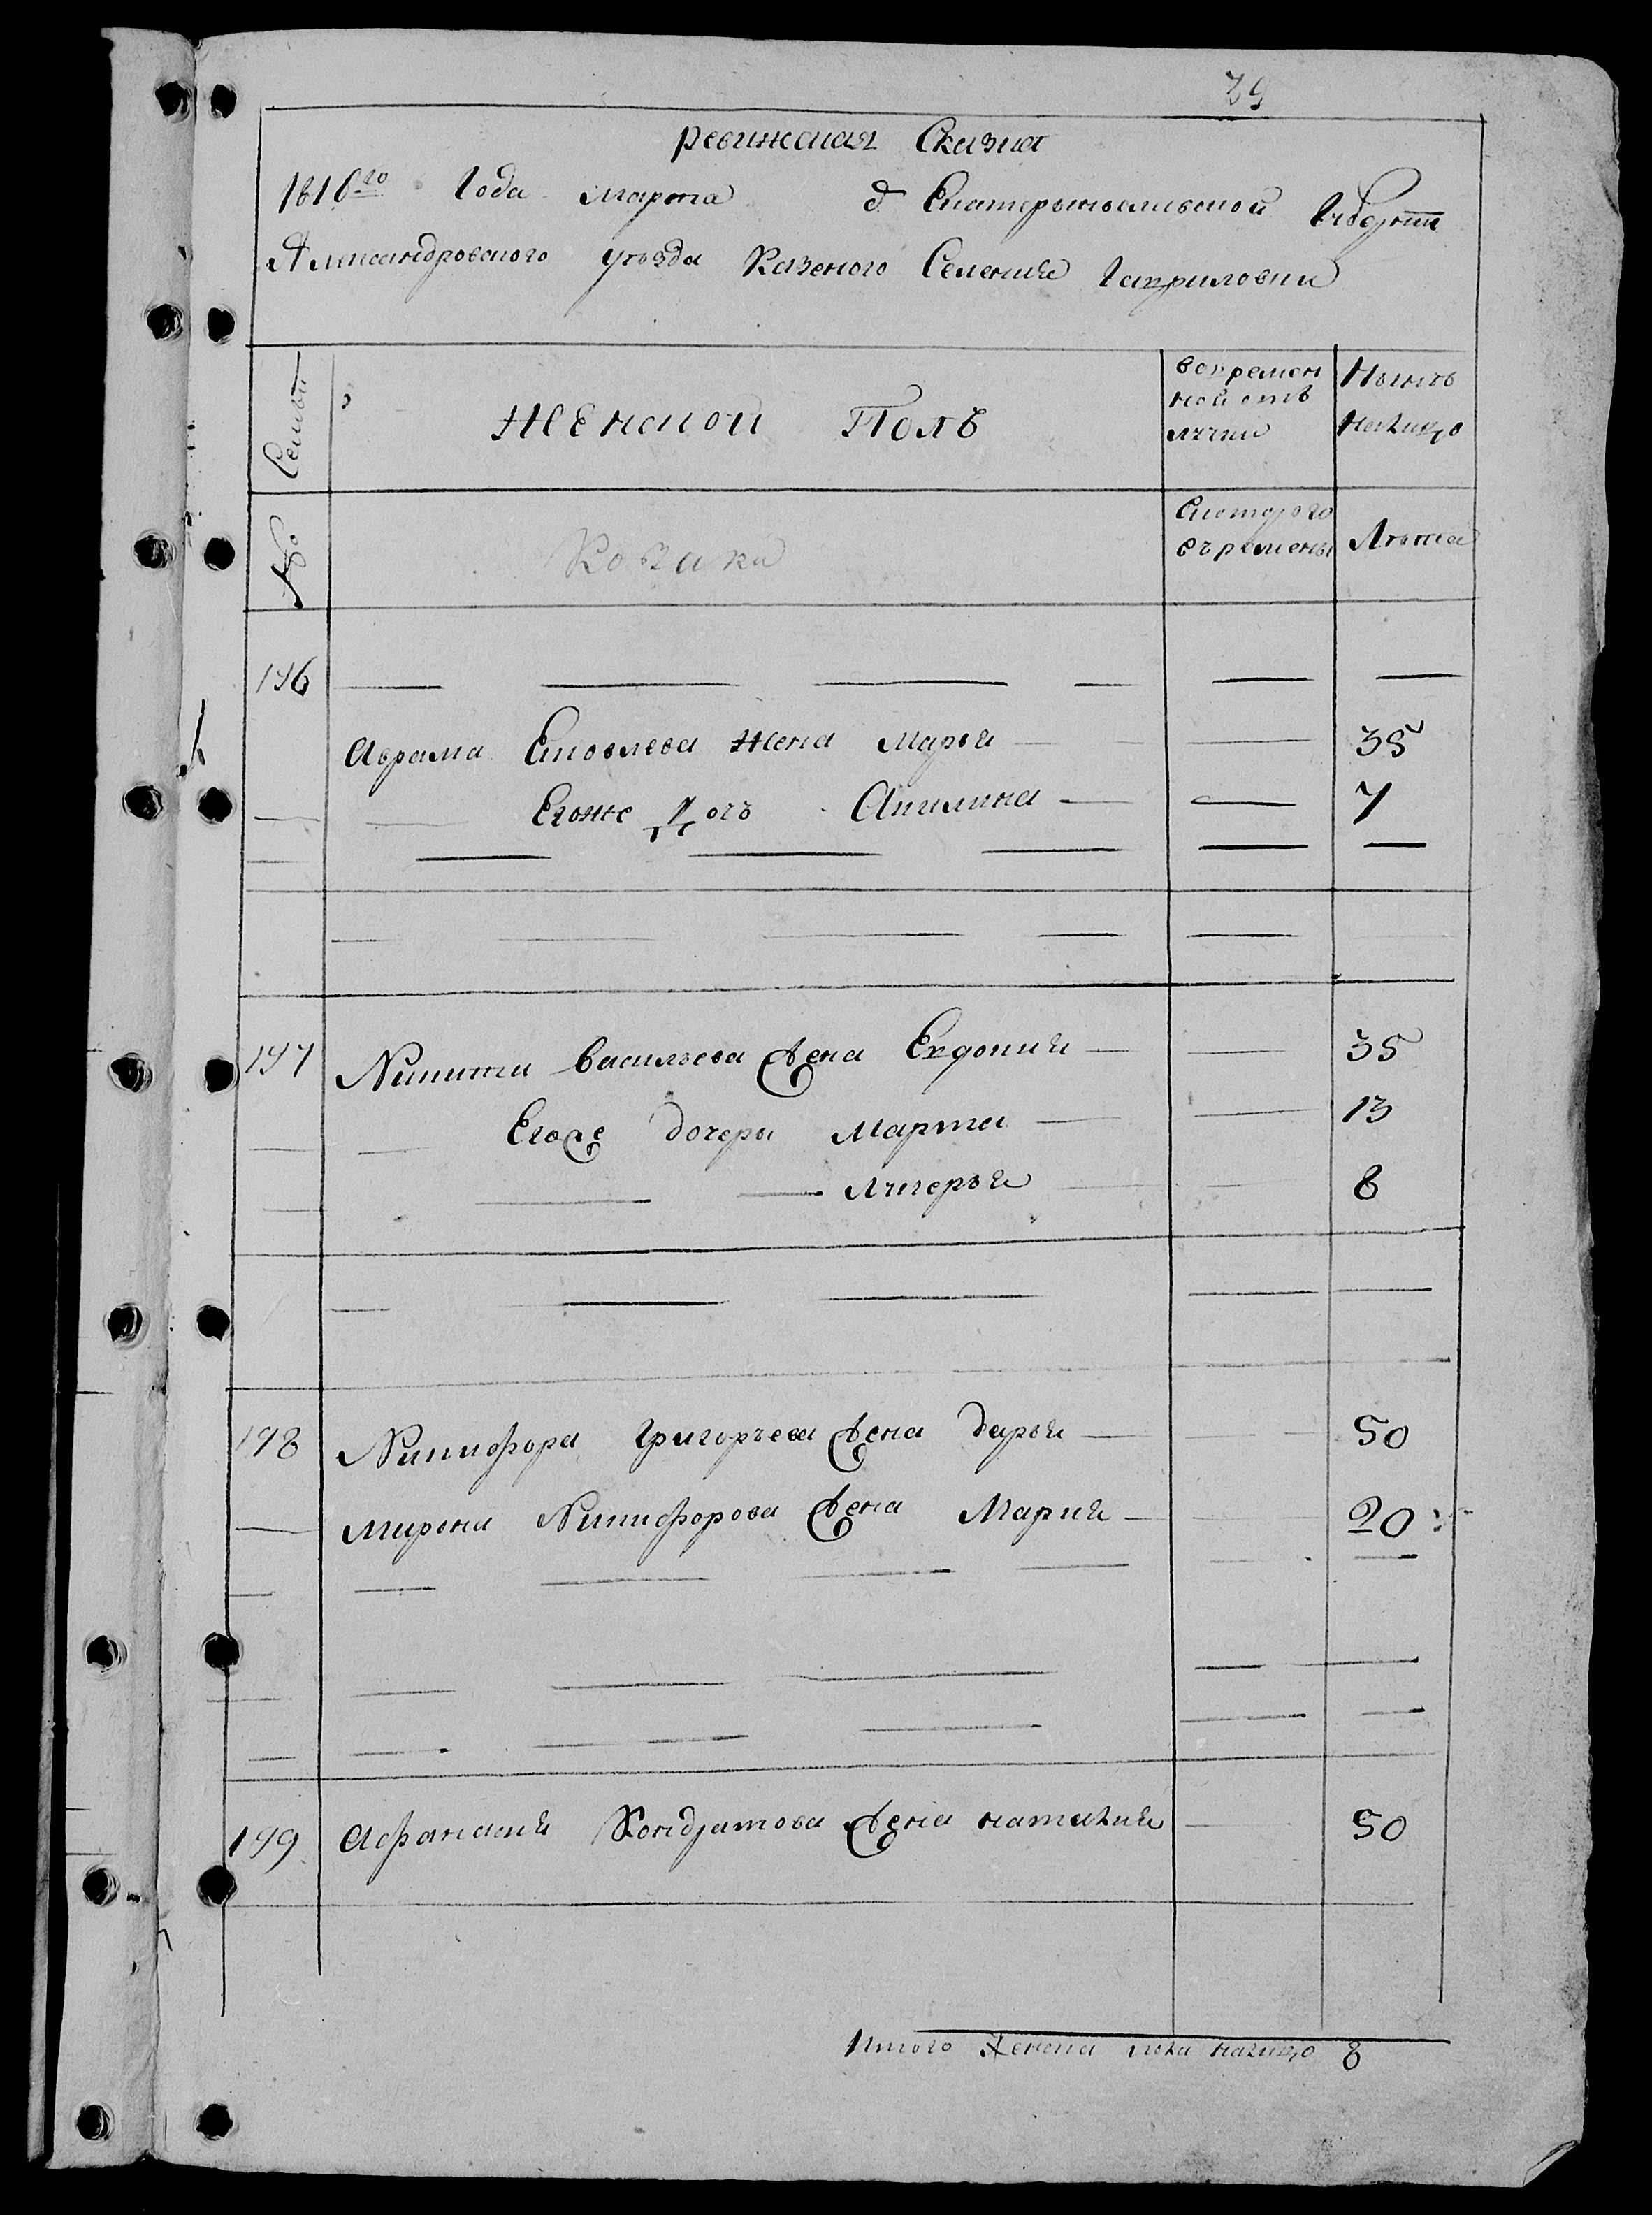 39
ревижская Сказка
1816го Года марта д. Екатеринославской Губернии
Александровского уѣзда Казеного Селения Гавриловки
Семьи
женской Полъ
вовремен
ной отъ
лучки
Нынѣ
Налицо
№
Козаки
Скоторого
времены
Лѣта
196
Аврама Ековлева жена Марья 35
Егоже Дочь Акилина 7
197 Никити Васильева жена Евдокия 35
Егоже дочери Марта 13
Лукерья 8
198 Никифора Григорьева жена дарья 50
Мирона Никифорова жена Мария 20
199 Афанасия Кондратова жена наталия 50
Итого женска пола налицо 8